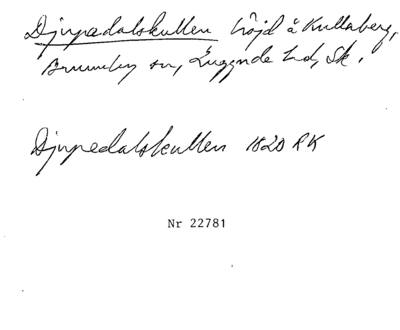 Djupadalskullen höjd å Kullaberg,
Brunnby sn, Luggude hd, Sk.
Djupedalskullen 1820 RK
Nr 22781